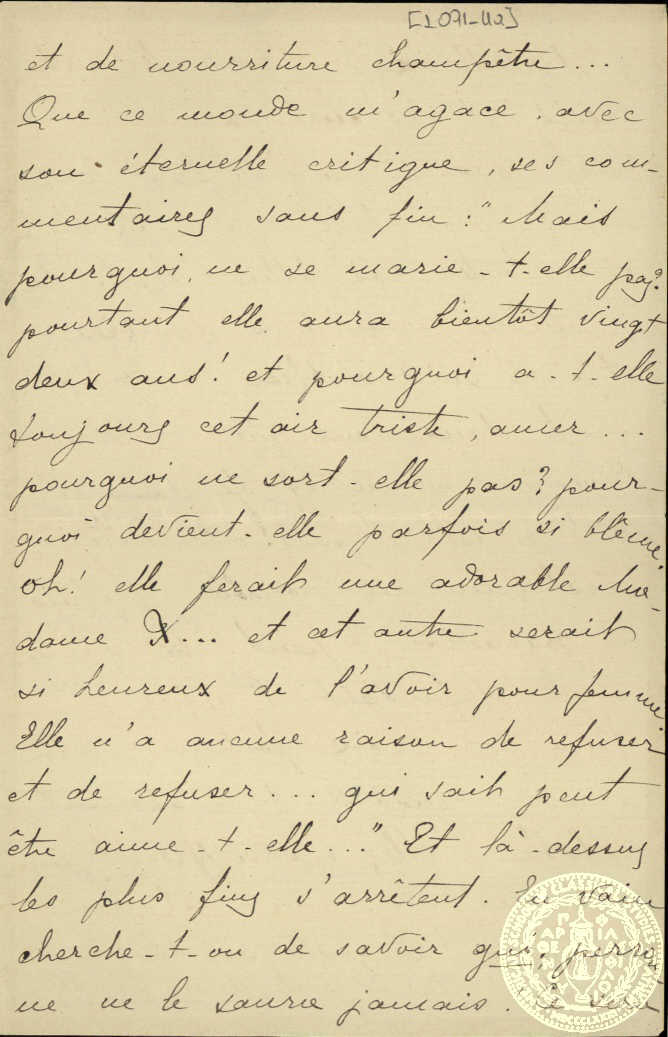 [1071-42]
et de nourriture champêtre...
Que ce monde m'agace, avec
son éternelle critique, ses com-
mentaires sans fin : "Mais
pourquoi, ne se marie-t-elle pas?
pourtant elle aura bientôt vingt
deux ans! et pourquoi a-t-elle
toujours cet air triste, amer...
pourquoi ne sort-elle pas? pour-
quoi devient-elle parfois si blême,
oh! elle ferait une adorable Ma-
dame X... et cet autre serait
si heureux de l'avoir pour femme.
Elle n'a aucune raison de refuser
et de refuser... qui sait peut
être aime-t-elle..." Et là-dessus
les plus fins s'arrêtent. En vain
cherche-t-on de savoir qui, person
ne ne le saura jamais.